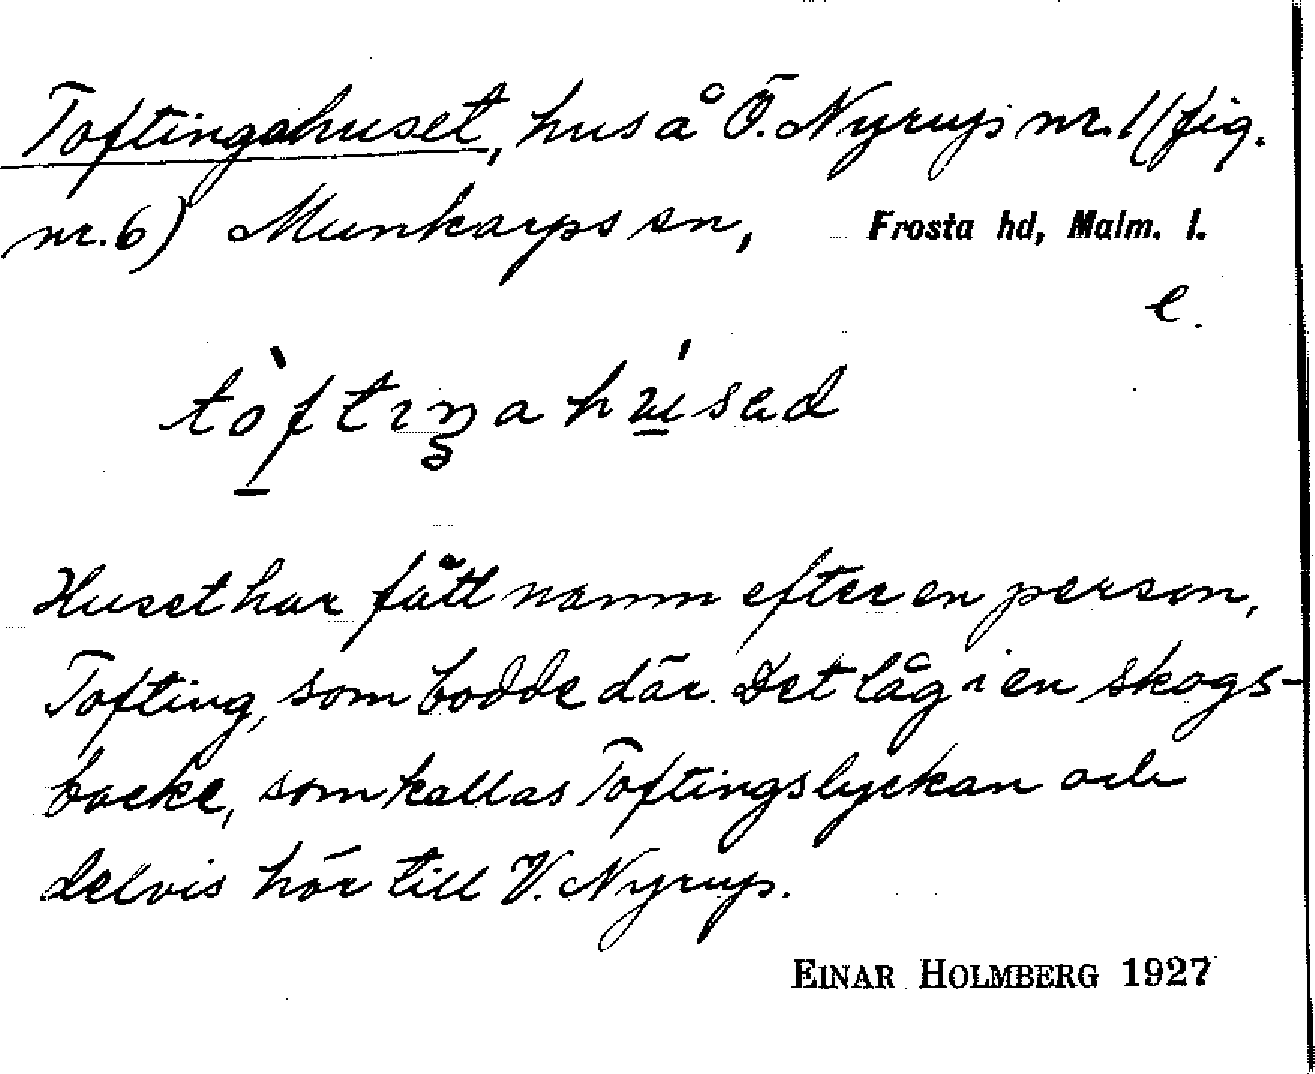 Toftingahuset, hus å Ö. Nyrup nr. 1 (fig.
nr. 6) Munkarps sn, Frosta hd, Malm. l.
e.
tòftiŋahúsəd
Huset har fått namn efter en person,
Tofting, som bodde där. Det låg i en skogs-
backe, som kallas Toftingslyckan och
delvis hör till V. Nyrup.
EINAR HOLMBERG 1927